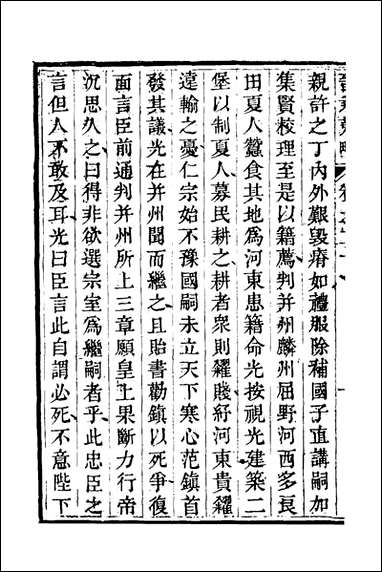 親許之丁內外艱毀瘠如禮服除補國子直講嗣如
集賢校理至是以籍薦判并州麟州屈野河西多良
田夏人蠶食其地為河東患籍命光按視光建築二
堡以制夏人募民耕之耕者衆則糴賤紓河東貴糴
遠輸之憂仁宗始不豫國嗣未立天下寒心范鎮首
發其議光在并州聞而繼之且貽書勸鎮以死爭復
面言臣前通判并州所上三章願皇上果斷力行帝
沉思久之曰得非欲選宗室為繼嗣者乎此忠臣之
言但人不敢及耳光曰臣言此自謂必死不意陛下